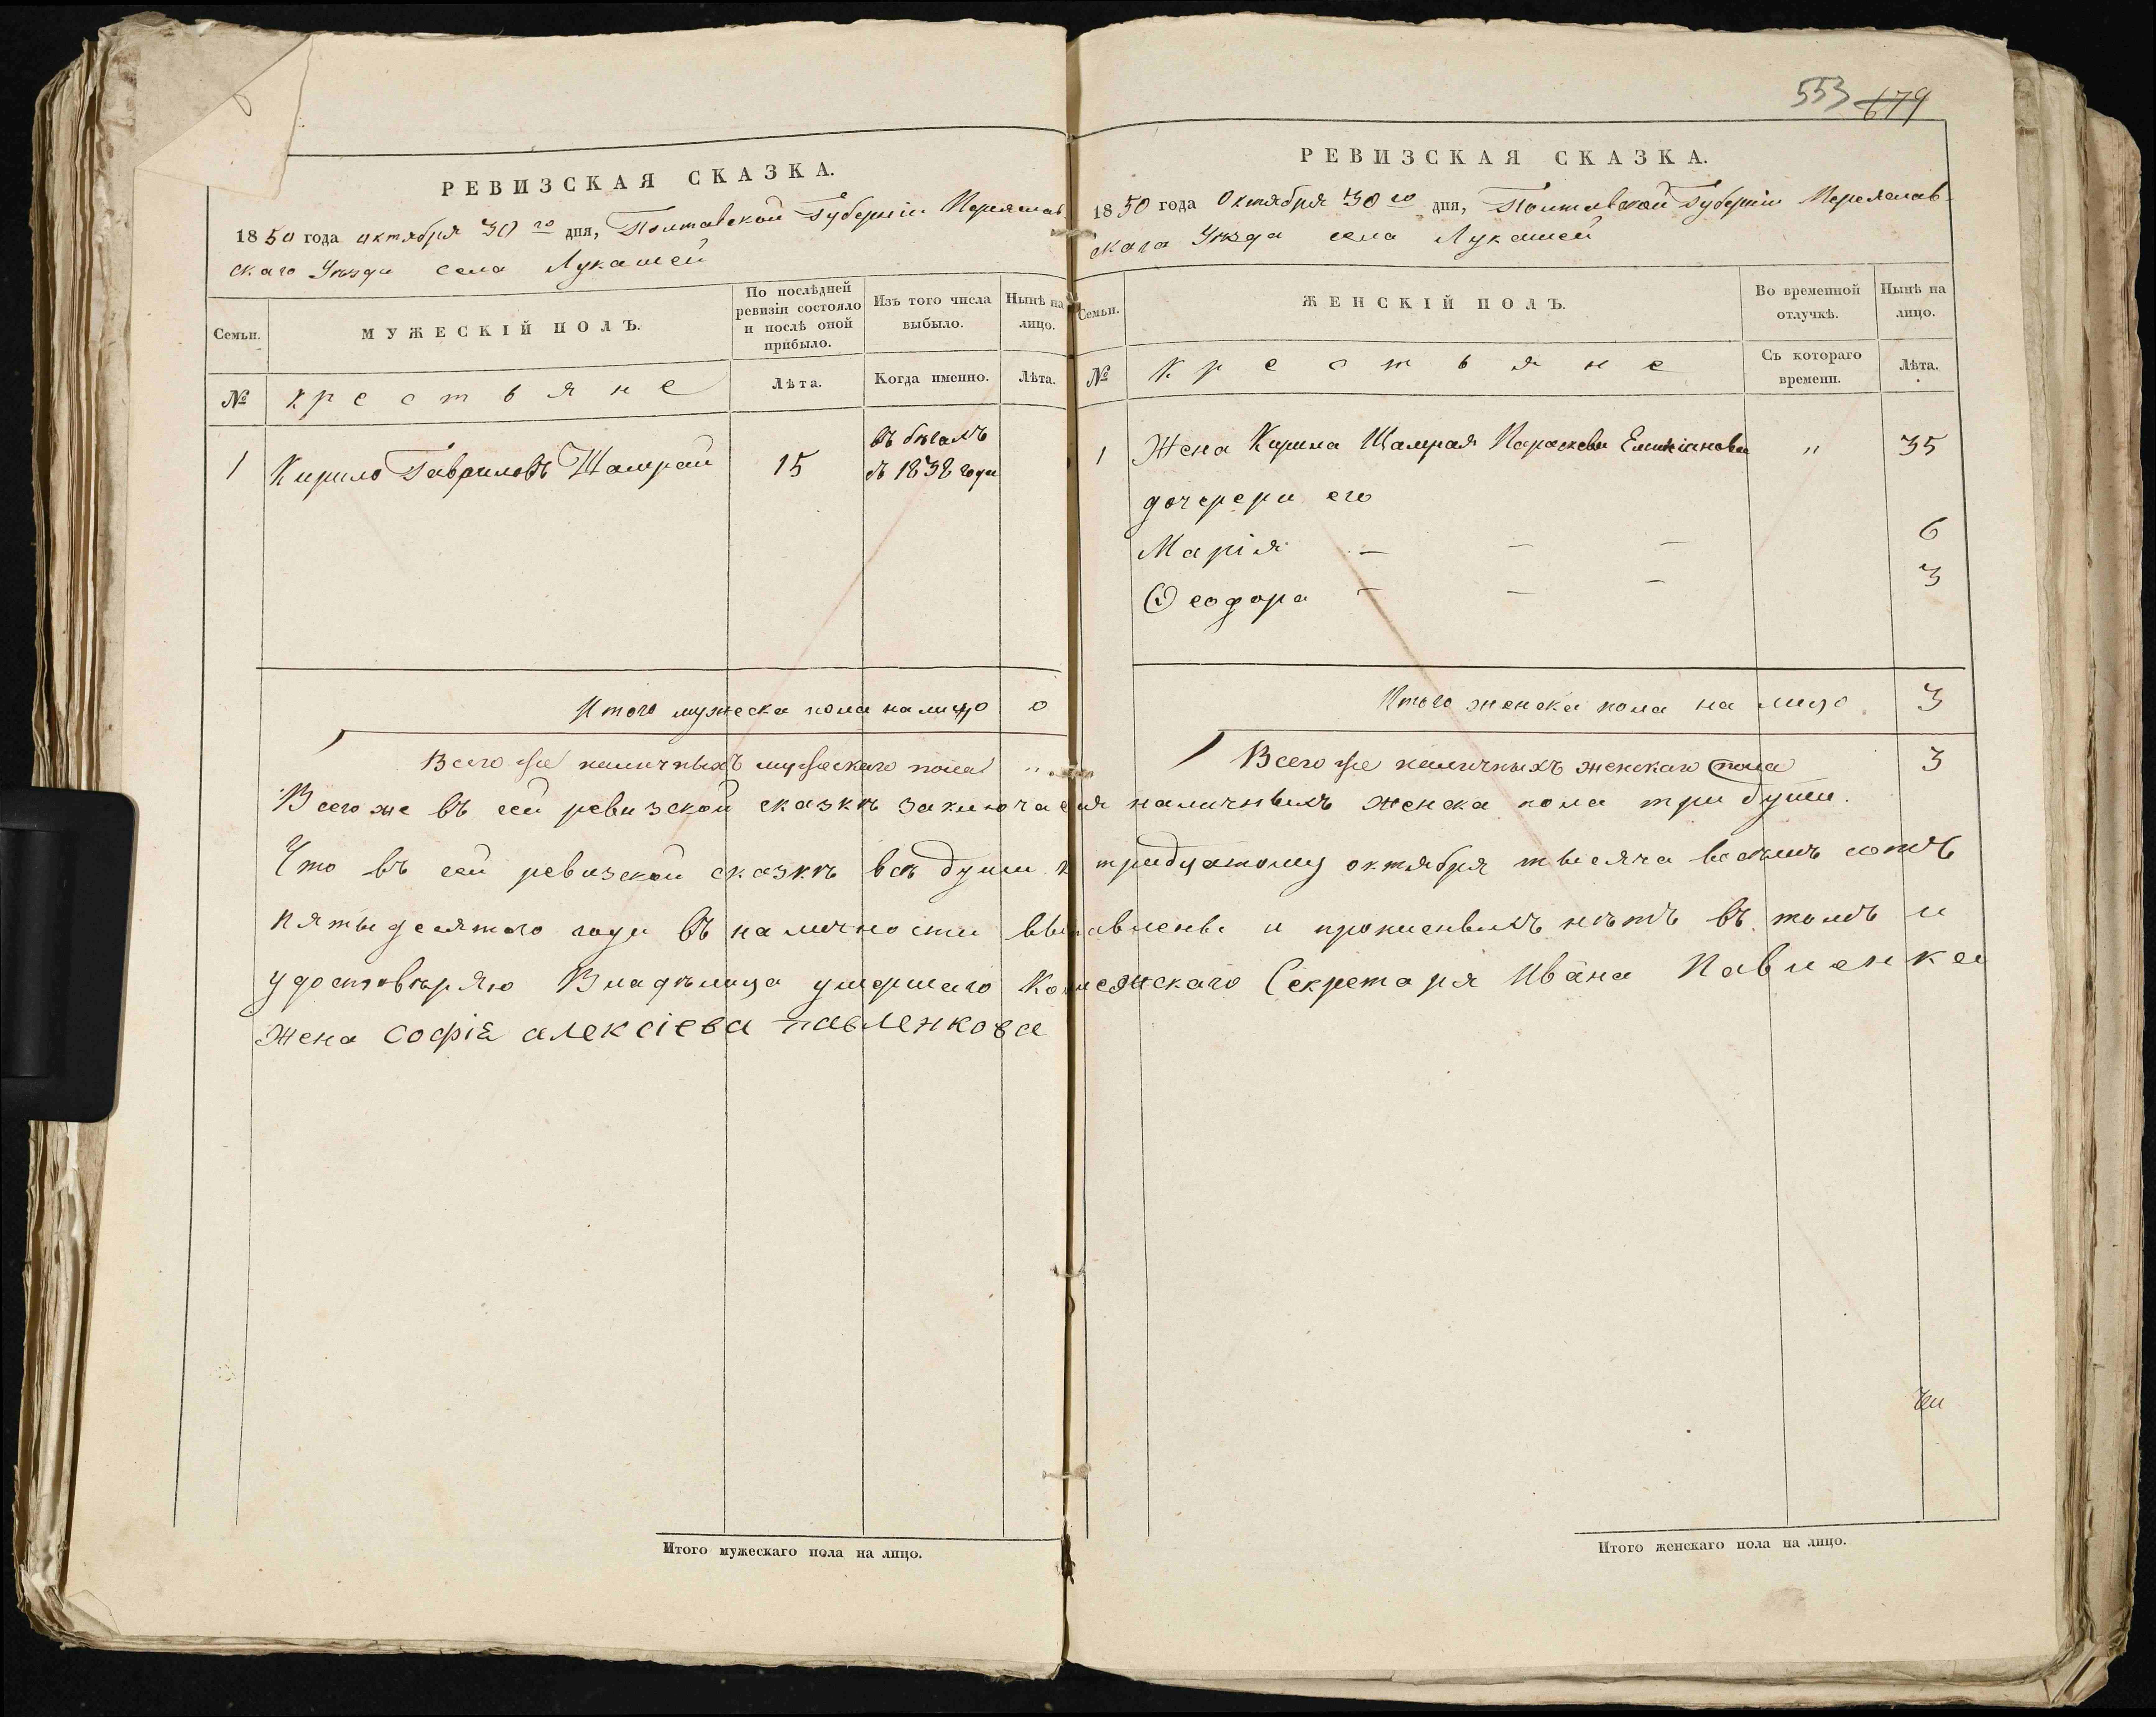 553 679
РЕВИЗСКАЯ СКАЗКА.
1850 года октября 30го дня, Полтавской Губерніи Переяслав-
скаго Уѣзда села Лукашей
Семьи.
МУЖЕСКІЙ ПОЛЪ.
По послѣдней
ревизіи состояло
и послѣ оной
прибыло.
Изъ того числа
выбыло.
Нынѣ на
лицо.
№
крестьяне
Лѣта.
Когда именно.
Лѣта.
1
Кирило Гавриловъ Шамрай
15
въ бѣгахъ
съ 1838 года
Итого мужеска пола налицо 0
Всего же наличныхъ мужескаго пола "
РЕВИЗСКАЯ СКАЗКА.
1850 года Октября 30го дня, Полтавской Губерніи Переяслав-
скаго Уѣзда села Лукашей
Семьи.
ЖЕНСКІЙ ПОЛЪ.
Во временной
отлучкѣ.
Нынѣ на
лицо.
№
Крестьяне
Съ котораго
времени.
Лѣта.
1
Жена Кирила Шамрая Параскева Емиліанова " 35
дочерери его
Марія — — — 6
Ѳеодора — — — 3
Итого женска пола на лицо 3
Всего же наличныхъ женскаго пола 3
Всего же въ сей ревизской сказкѣ заключается наличныхъ женска пола три души.
Что въ сей ревизской сказкѣ всѣ души к тридцатому октября тысяча восемъ сотъ
пятьдесятого года въ наличности выявлены и прописныхъ нѣтъ въ томъ и
удостовѣряю Владѣлица умершаго Колежскаго Секретаря Ивана Павленка
Жена софія алексіева павленкова
Итого мужескаго пола на лицо.
Итого женскаго пола на лицо.